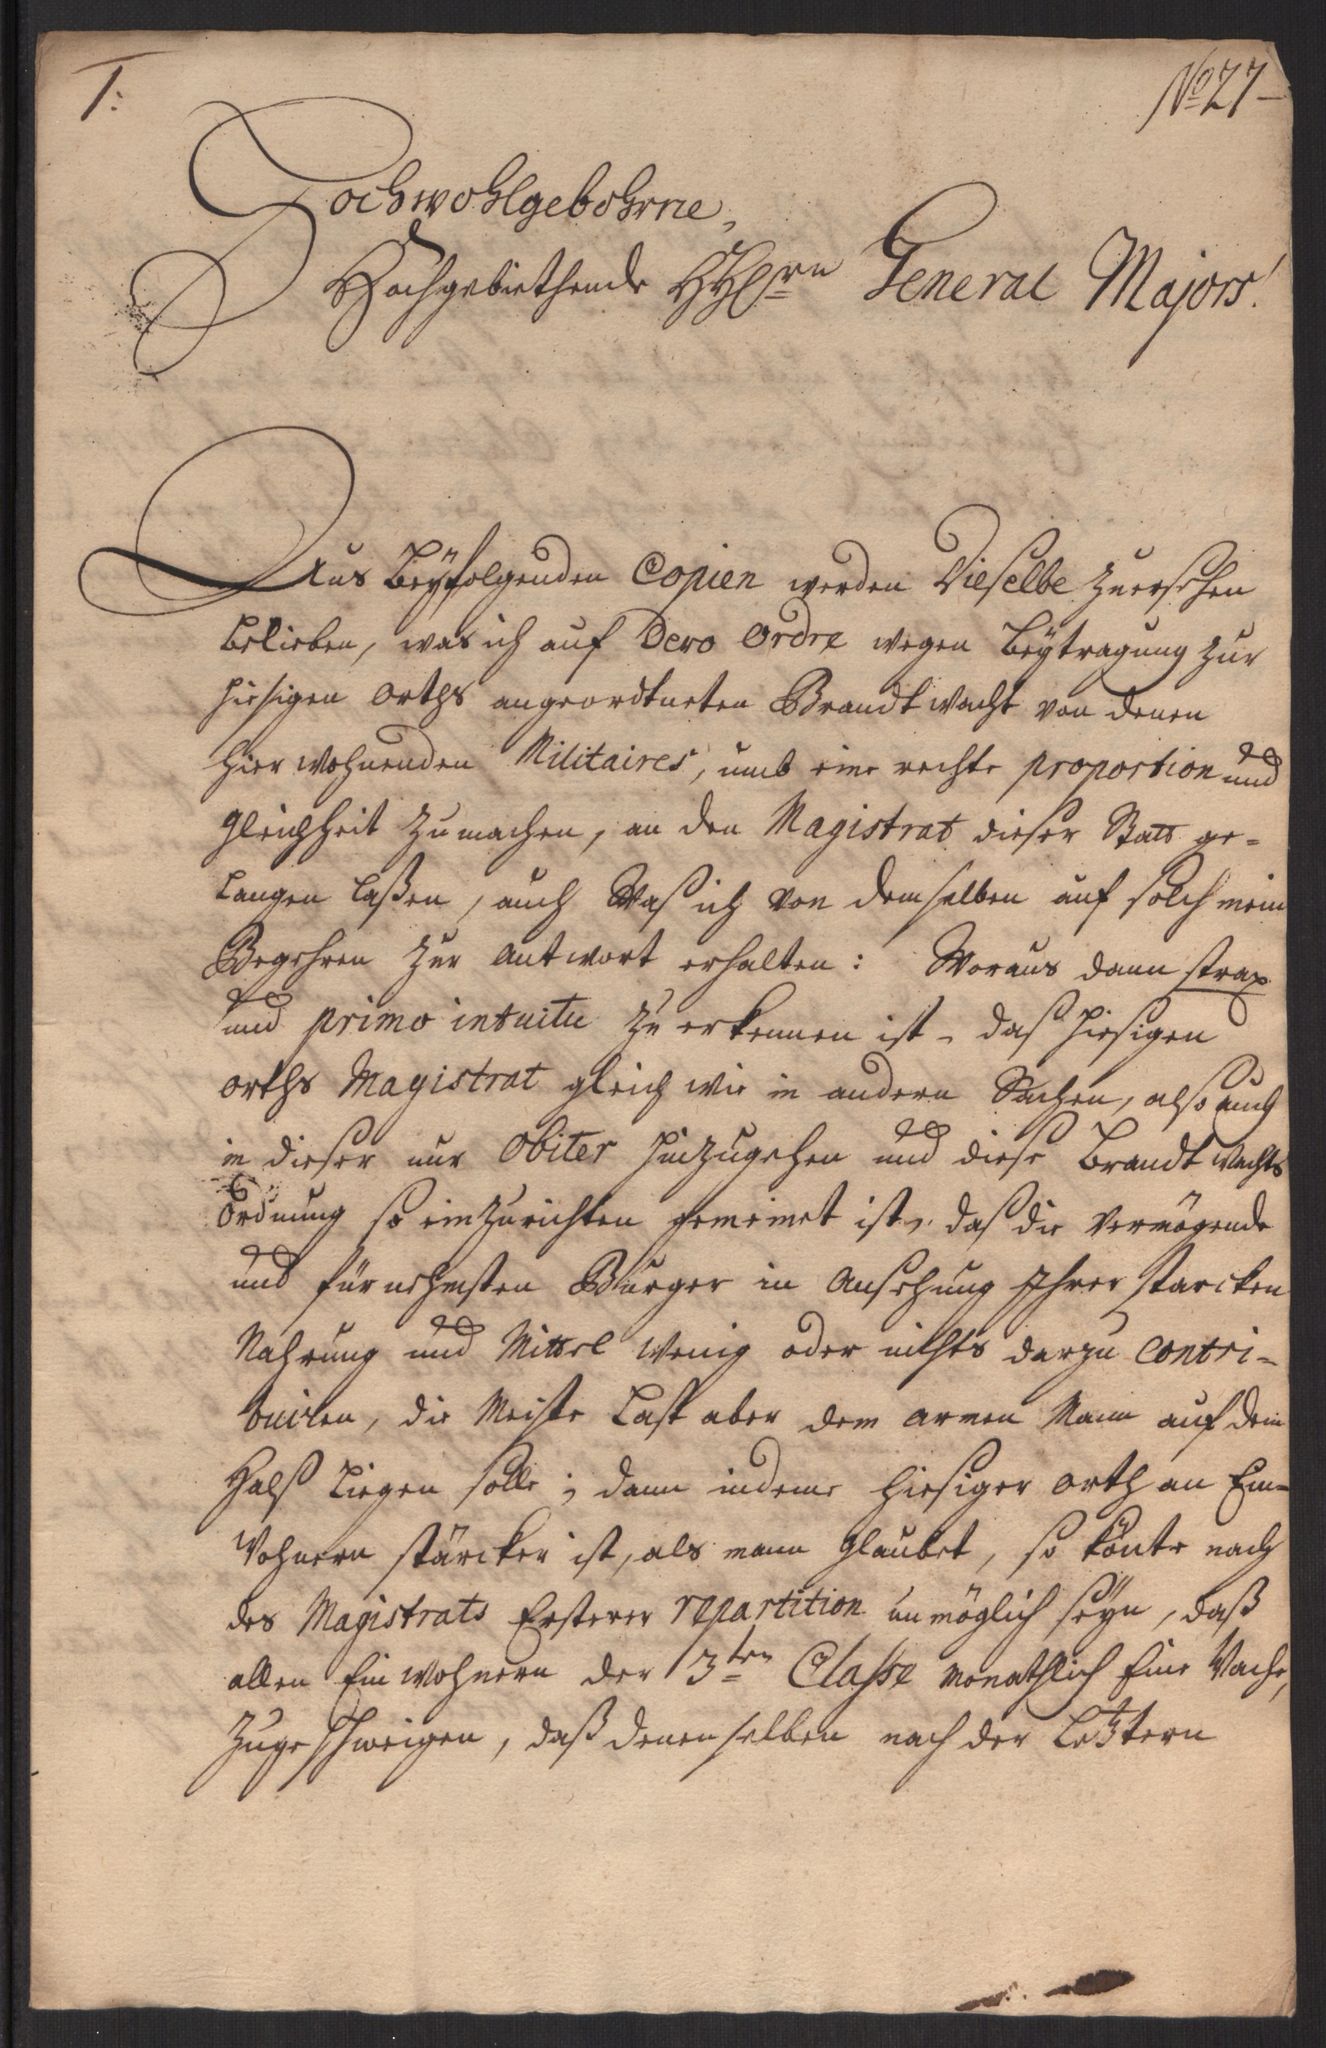 1:
No 27
Hochwohlgebohrne,
Hochgebiethende HHrn General Majors!
Aus beÿfolgenden Copien werden Dieselbe zuersehen
belieben, was ich auf Dero Ordre wegen beÿtragung zur
hiesigen orths angeordtneten Brandtwacht von denen
hier wohnenden Militaires, umb eine rechte proportion und
gleichheit zu machen, an den Magistrat dieser Statt ge-
langen laßen, auch Waß ich von demselben auf solch mein
Begehren zur antwort erhalten: Woraus dann strax
und primo intuitu zu erkennen ist, das hiesigen
orths Magistrat gleich wie in andern Sachen, also auch
in dieser nur obiter hinzugehen und diese Brandtwachts
Ordnung so einzurichten gemeinet ist, das die Vermögende
und fürnehmsten Bürger in Ansehung Ihrer starcken
Nahrung und Mittel wenig oder nichts darzu contri-
buiren, die Meiste Last aber dem armen Mann auf dem
Halß liegen solle; dann indeme hiesiger orth an Ein-
wohnern stärcker ist, als mann glaubet, so könte nach
des Magistrats Ersterer repartition unmöglich seÿn, daß
allen Einwohnern der 3ten Classe monathlich Eine Wache,
zugeschweigen, daß denenselben nach der Letztern